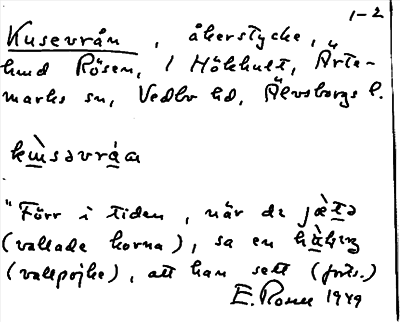 1-2
Kusevrån, åkerstycke,
hmd Rösen, i Hökhult, Årte-
marks sn, Vedbo hd, Älvsborgs l.
"Förr i tiden, när de
(vallade korna), sa en
(vallpojke), att han sett (forts.)
E. Rosen 1949